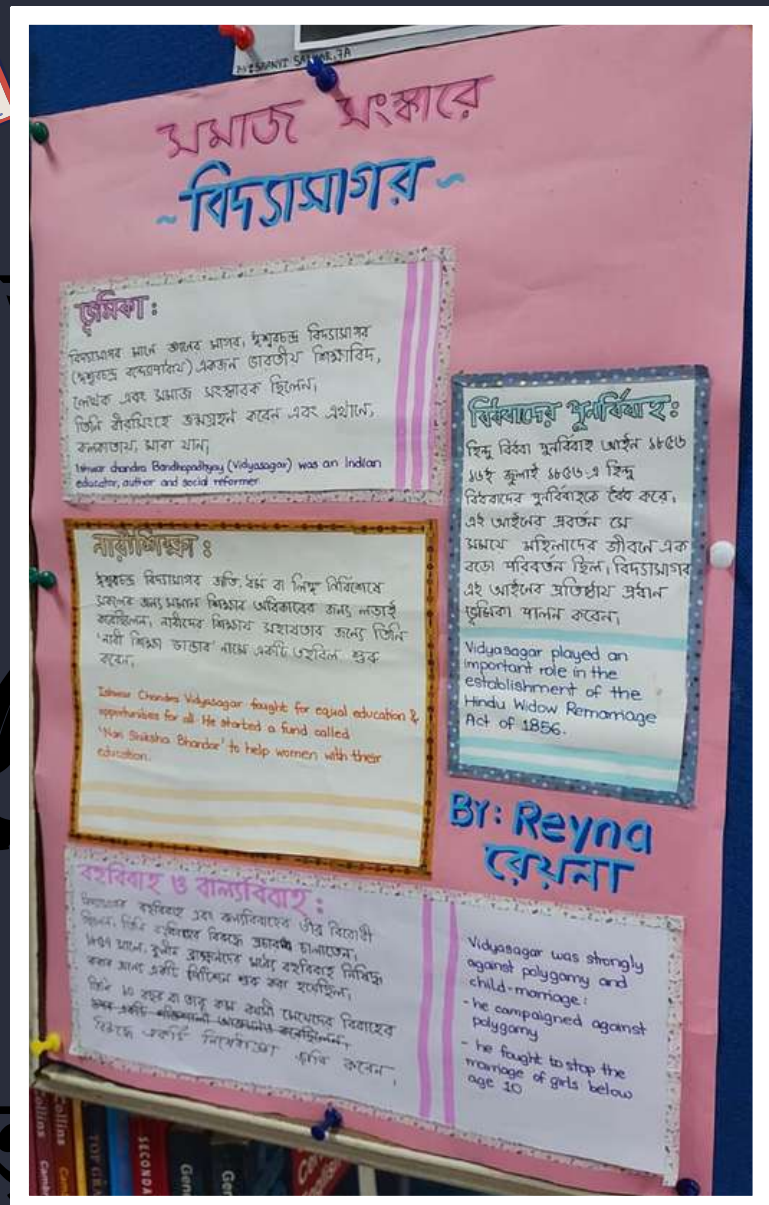 BY: SAANVI SARKAR, 7A
সমাজ সংস্কারে
~বিদ্যাসাগর~
ভূমিকা :
বিদ্যাসাগর মানে জ্ঞানের সাগর, ঈশ্বরচন্দ্র বিদ্যাসাগর
(ঈশ্বরচন্দ্র বন্দ্যোপাধ্যায়) একজন ভারতীয় শিক্ষাবিদ,
লেখক এবং সমাজ সংস্কারক ছিলেন,
তিনি বীরসিংহে জন্মগ্রহন করেন এবং এখানে,
কলকাতায়, মারা যান,
Ishwar chandra Bandhopadhyay (Vidyasagar) was an Indian
educator, author and social reformer
নারীশিক্ষা :
ঈশ্বরচন্দ্র বিদ্যাসাগর জাতি, ধর্ম বা লিঙ্গ নির্বিশেষে
সকলের জন্য সমান শিক্ষার অধিকারের জন্য লড়াই
করেছিলেন, নারীদের শিক্ষায় সহায়তার জন্যে তিনি
'নারী শিক্ষা ভান্ডার' নামে একটি তহবিল শুরু
করেন,
Ishwar Chandra Vidyasagar fought for equal education &
opportunities for all. He started a fund called
'Nari Shiksha Bhandar' to help women with their
education.
বিধবাদের পুনর্বিবাহ :
হিন্দু বিধবা পুনর্বিবাহ আইন ১৮৫৬
১৬ই জুলাই ১৮৫৬-এ হিন্দু
বিধবাদের পুনর্বিবাহকে বৈধ করে,
এই আইনের প্রবর্তন সে
সময়ে মহিলাদের জীবনে এক
বড়ো পরিবর্তন ছিল, বিদ্যাসাগর
এই আইনের প্রতিষ্ঠায় প্রধান
ভূমিকা পালন করেন,
Vidyasagar played an
important role in the
establishment of the
Hindu Widow Remarriage
Act of 1856.
By: Reyna
রেয়না
বহুবিবাহ ও বাল্যবিবাহ :
বিদ্যাসাগর বহুবিবাহ এবং বাল্যবিবাহের তীব্র বিরোধী
ছিলেন, তিনি বহুবিবাহের বিরুদ্ধে প্রচারণা চালাতেন,
সালে, কুলীন ব্রাহ্মণদের মধ্যে বহুবিবাহ নিষিদ্ধ
করার জন্যে একটি পিটিশন শুরু করা হয়েছিল,
তিনি ১০ বছর বা তার কম বয়সী মেয়েদের বিবাহের
বিরুদ্ধে একটি নিষেধাজ্ঞা করেন,
Vidyasagar was strongly
against polygamy and
child-marriage:
- he campaigned against
polygamy
- he fought to stop the
marriage of girls below
age 10
Collins
Collins
TOP GRA
SECONDA
Gene
Ge